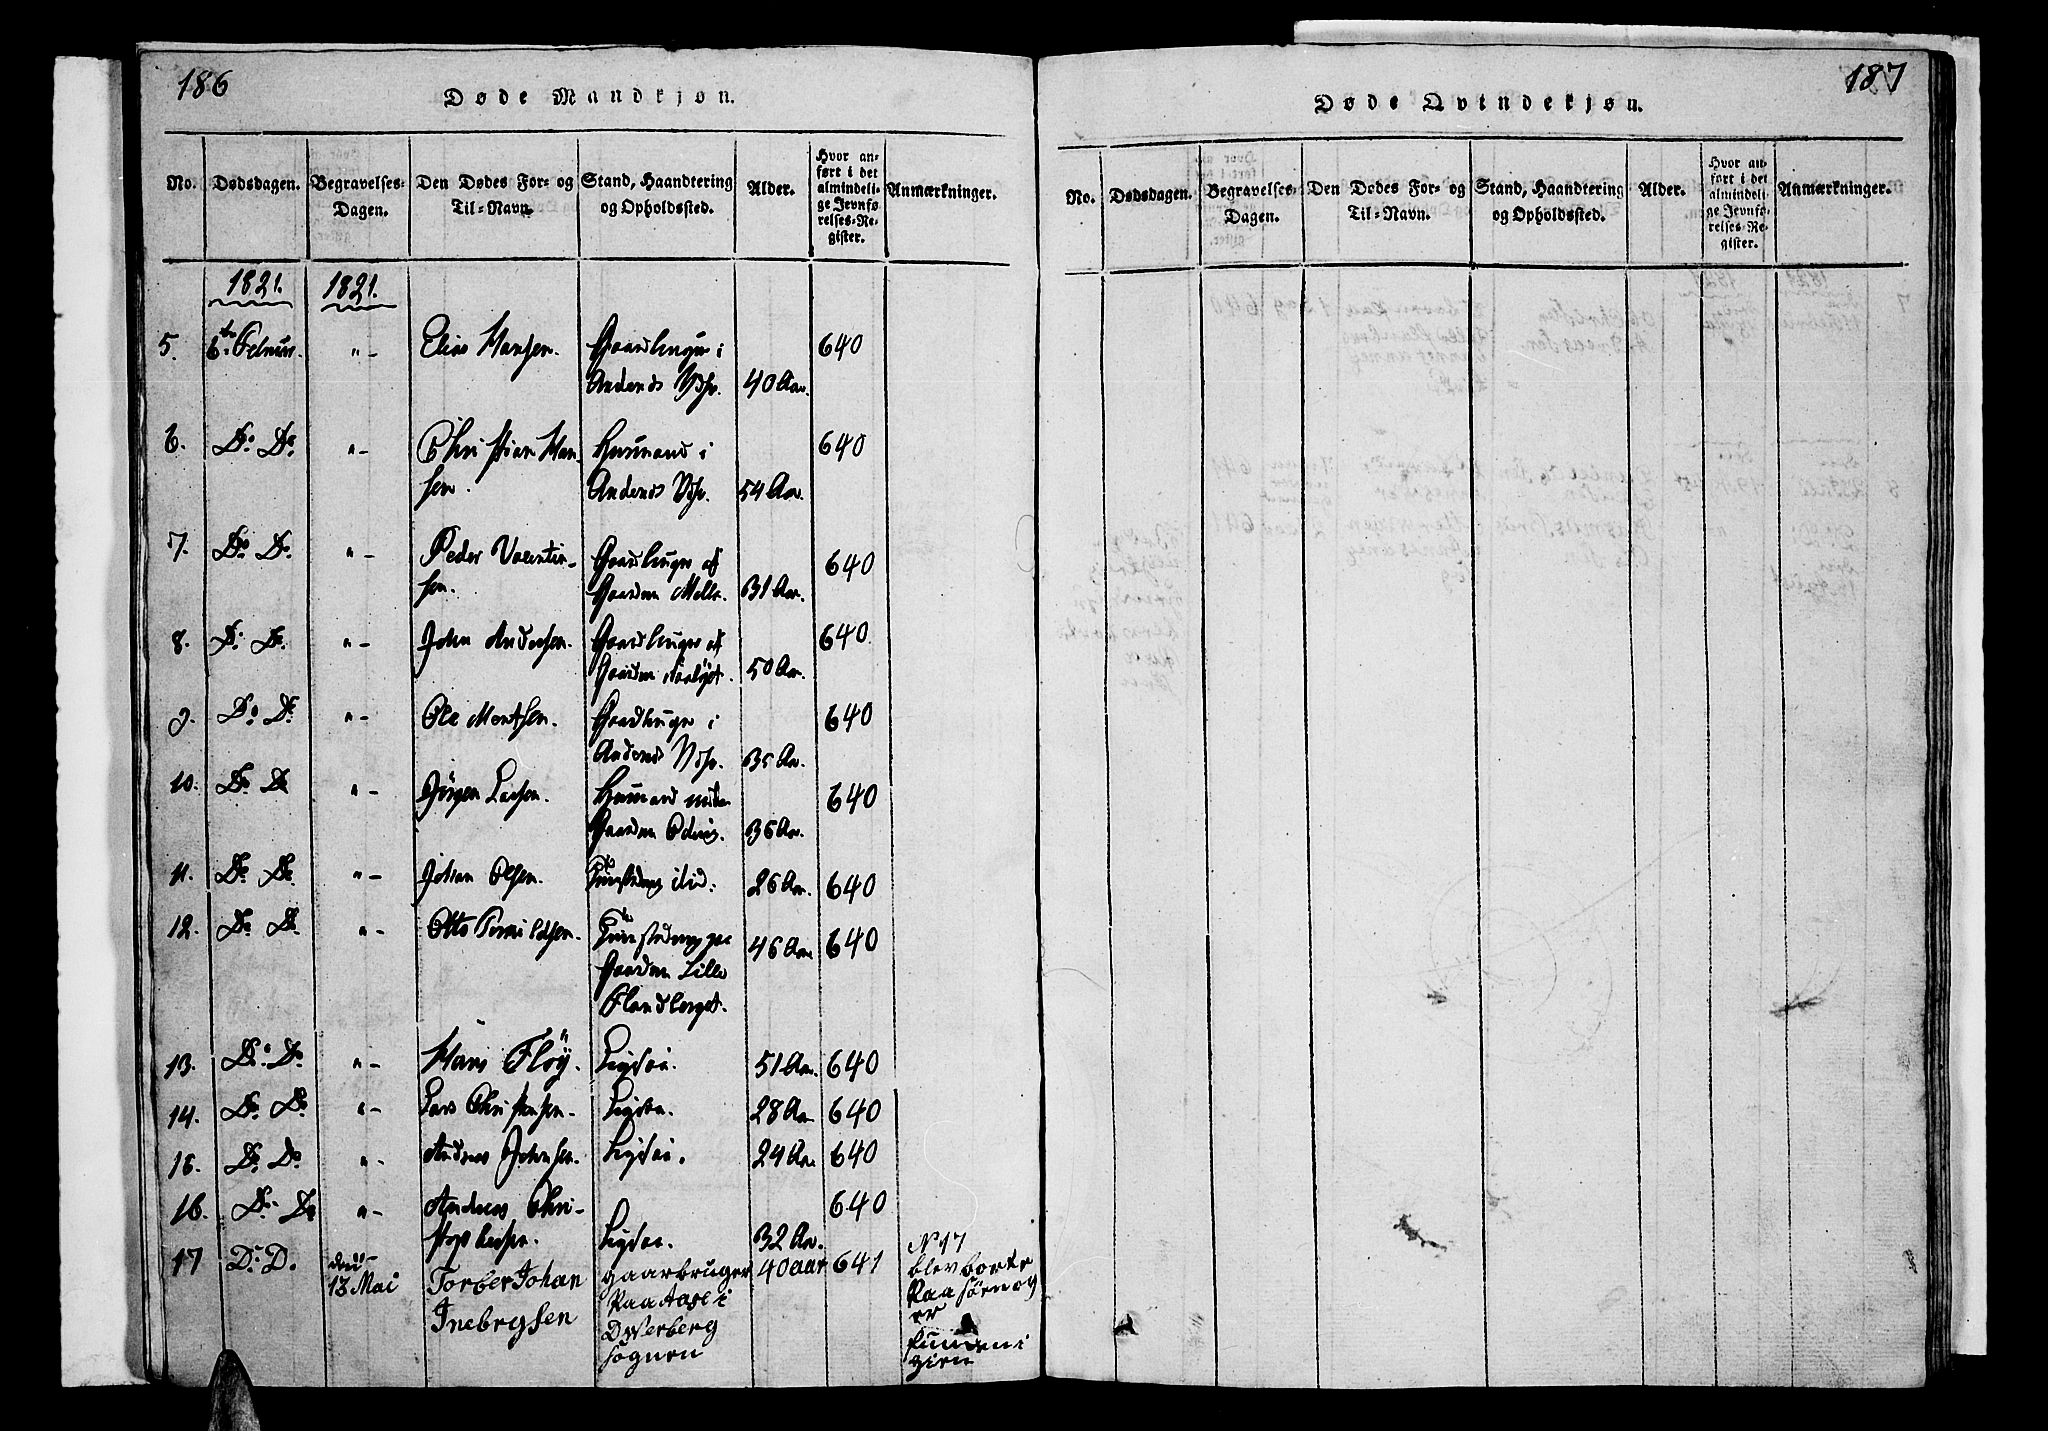 186
Døde Mandkjøn.
No. Dødsdagen. Begravelses-Dagen. Den Dødes For- og Til-Navn. Stand, Haandtering og Opholdssted. Alder. Hvor anført i det almindelige Jevnførelses-Register. Anmærkninger.
1821. 1821.
5. 6te Februar. "- Elias Hansen. Gaardbruger i
Andenes Vær. 40 Aar. 640
6. Do. Do. "- Christian Han-
sen. Huusmand i
Andenes Vær. 54 Aar. 640
7. Do. Do. "- Peder Valentin-
sen. Gaardbruger af
Gaarden Melle. 31 Aar. 640
8. Do. Do. "- John Andersen. Gaardbruger af
Gaarden 50 Aar. 640
9. Do. Do. "- Ole Mortsen. Gaardbruger i
Andenes Vær. 35 Aar. 640
10. Do. Do. "- Jörgen Larsen. Huusmand under
Gaarden 36 Aar. 640
11. Do. Do. "- Johan Olsen. Tjenestedreng ibid. 26 Aar. 640
12. Do. Do. "- Otto Tomildsen. Tjenestedreng paa
Gaarden Lille
46 Aar. 640
13. Do. Do. "- Hans Flöy. Ligesaa. 51 Aar. 640
14. Do. Do. "- Lars Christensen. Ligesaa. 28 Aar 640
15. Do. Do. "- Andreas Johnsen. Ligesaa. 24 Aar 640
16. Do. Do. "- Andreas Chri-
stophersen. Ligesaa. 32 Aar. 640
17 Do. D. den
13 Mai Torber Johan
Inebrgsen gaarbruger
Paa Aase i
Dwerberg
Sognen 40 aar 641 No 17
blev borte
Paa Sörn og
er
funden i
gien
187
Døde Qvindekjøn.
No. Dødsdagen. Begravelses-Dagen. Den Dødes For- og Til-Navn. Stand, Haandtering og Opholdssted. Alder. Hvor anført i det almindelige Jevnførelses-Register. Anmærkninger.